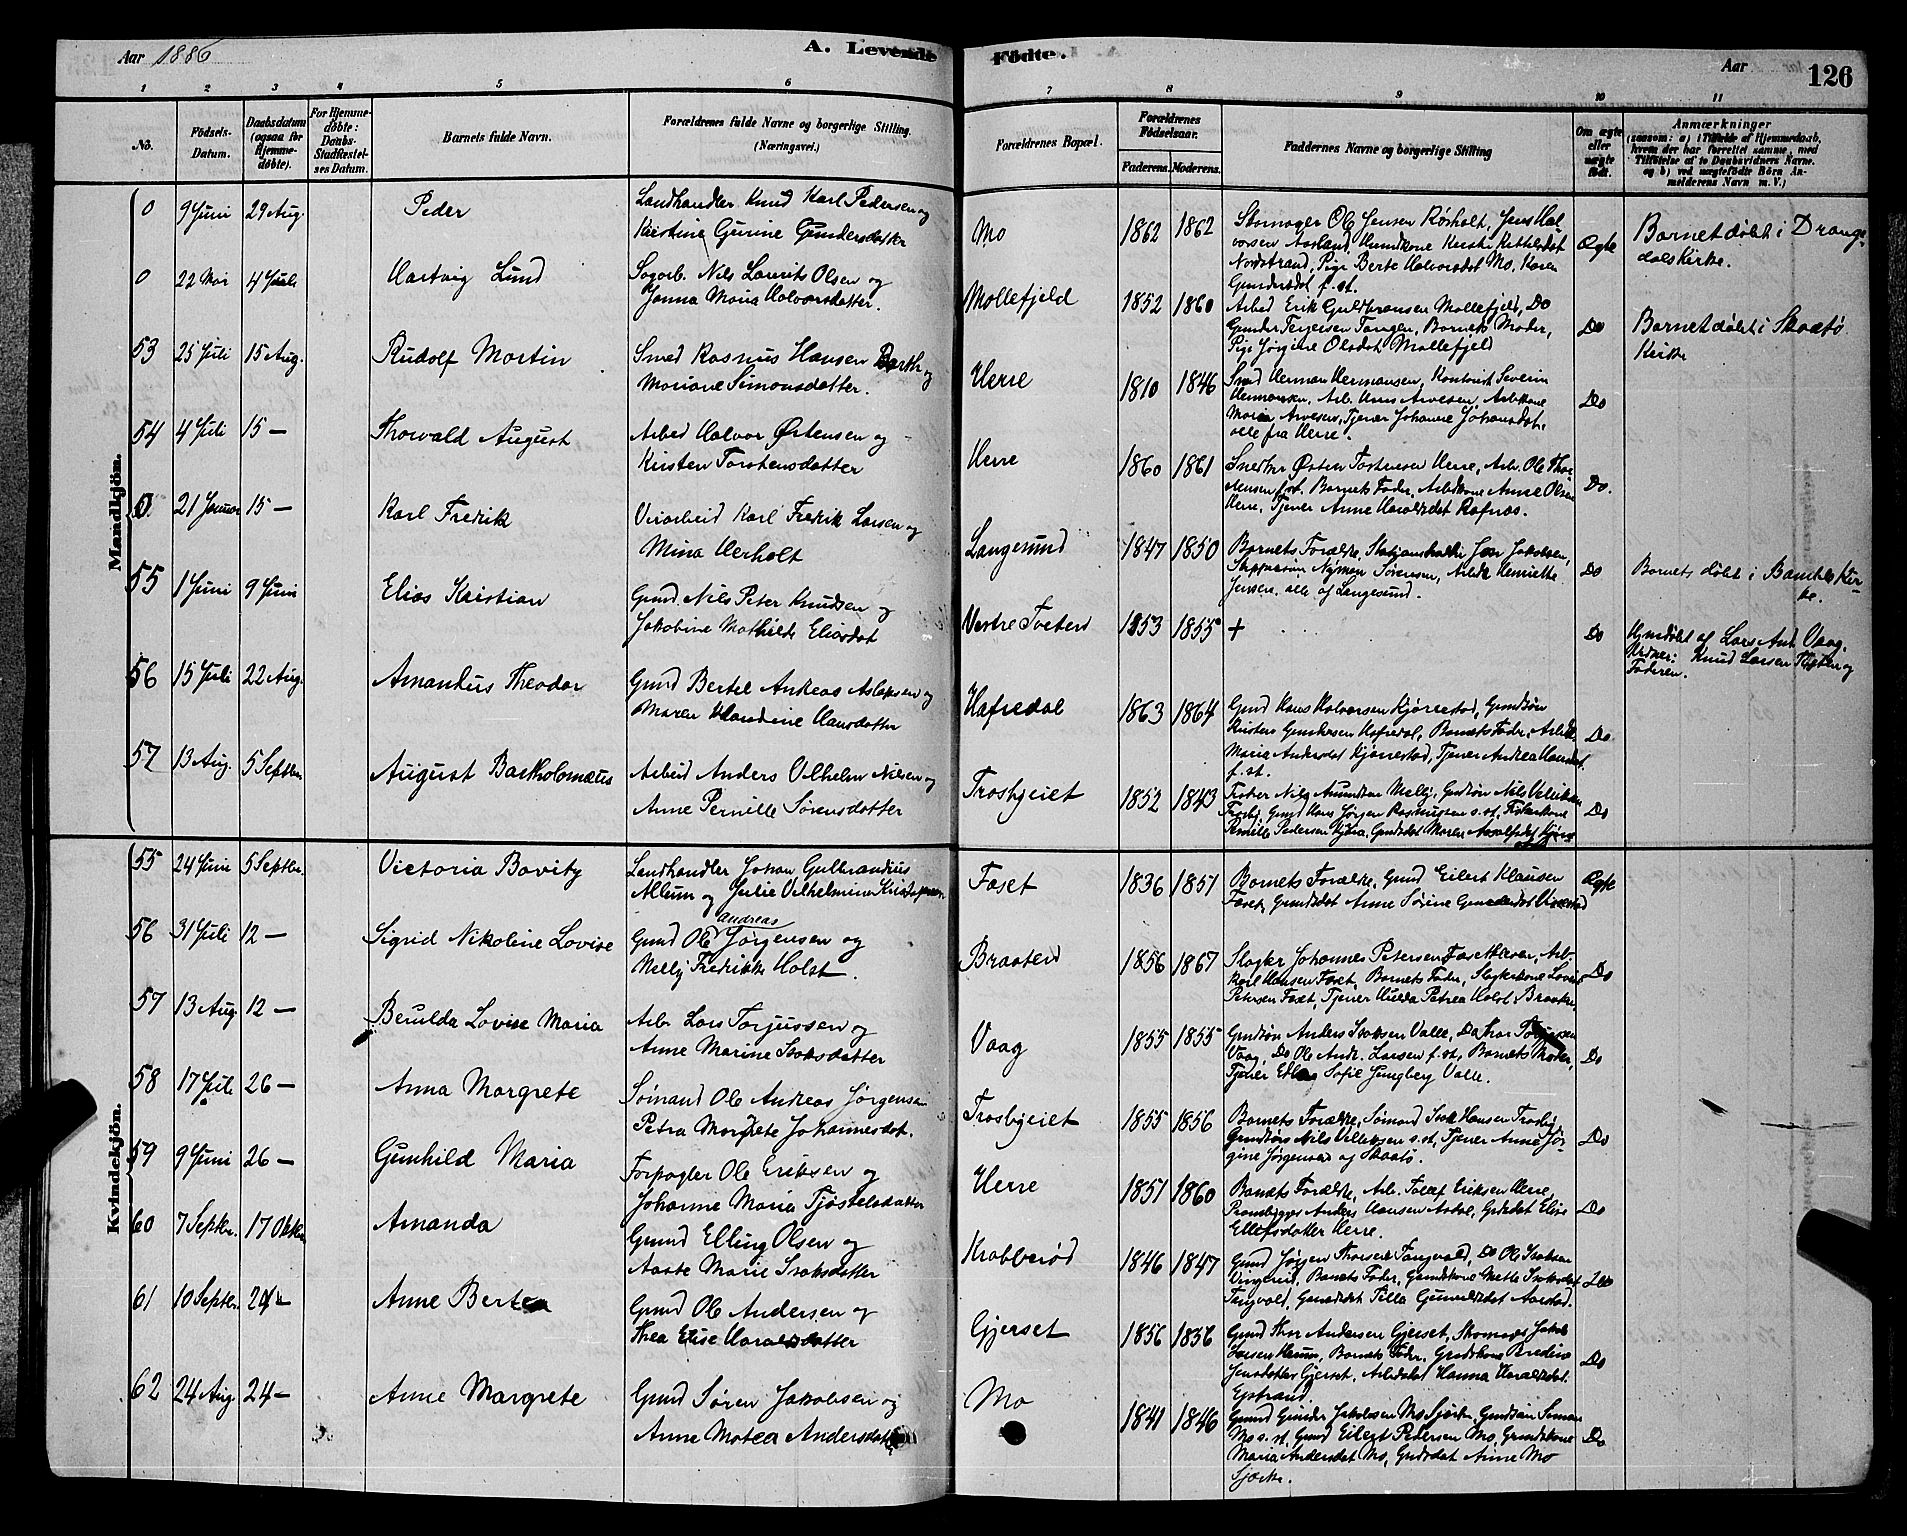 Aar 1886
A. Levende
Fødte.
Aar
126
1 2 3 4 5 6 7 8 9 10 11
No.
Fødsels-
Datum.
Daabsdatum
(ogsaa for
Hjemme-
døbte).
For Hjemme-
døbte:
Daabs-
Stadfæstel-
ses Datum.
Barnets fulde Navn.
Forældrenes fulde Navne og borgerlige Stilling.
(Næringsvei.)
Forældrenes Bopæl.
Forældrenes
Fødselsaar.
Faderens. Moderens.
Faddernes Navne og borgerlige Stilling
Om ægte
eller
uægte
født.
Anmærkninger
(saasom: a) i Tilfælde af Hjemmedaab,
hvem der har forrettet samme, med
Tilføielse af to Daabsvidners Navne.
og b) ved uægtefødte Børn An-
melderens Navn m. V.)
Mandkjön.
0 9 Juni 29 Aug. Peder
Landhandler Knud Karl Pedersen og
Kirstine Gurine Gundersdatter
Mo 1862 1862
Skomager Ole Jensen Rørholt, Jens Hal-
vorsen Aasland, Kirsti Kittilsdat
Nordstrand, Pige Berte Halvorsdat Mo, Karen
Gundersdat f. st.
Ægte
Barnet døbt i Drange-
dals Kirke.
0 22 Mai 4 Juli Hartvig Lund
Sagarb. Nils Laurits Olsen og
Janna Maria Halvorsdatter.
Mollefjeld 1852 1860
Arbed Erik Guldbransen Mollefjeld, Do
Gunder Terjesen Tangen, Barnets Moder,
Pige Jørgine Olsdat Mollefjeld
Do
Barnet døbt i Skaatø
Kirke
53 25 Juli 15 Aug. Rudolf Martin
Smed Rasmus Hansen Barth og
Mariane Simonsdatter.
Herre 1810 1846
Smed Herman Hermansen, Kontorist Severin
Hermansen, Arb. Hans Arvesen, Arbkone
Maria Arvesen, Tjener Johanne Johansdat,
alle fra Herre.
Do
54 4 Juli 15 — Thorvald August
Arbed Halvor Østensen og
Kirsten Torstensdatter
Herre 1860 1861
Snedker Østen Tostensen Herre, Arb. Ole Thor-
stensen f. st. Barnets Fader, Arbdkone Anne Olsen
Herre, Tjener Anne Haraldsdat Rafnæs.
Do.
0. 21 Januar 15 — Karl Fredrik
Karl Fredrik Larsen og
Mina Herholt
Langesund 1847 1850
Barnets Forældre, Jakobsen,
Nyman Sørensen, Henriette
Jensen. alle af Langesund.
Do
Barnets døbt i Bamble Kir-
ke.
55 1 Juni 9 Juni Elias Kristian
Grund. Nils Peter Knudsen og
Jakobine Mathilde Eliasdat
Vestre Tveten 1853 1855
+
Do
Hjmdøbt af Lars And. Vaag.
Vidner: Knud Larsen og
Faderen.
56 15 Juli 22 Aug. Amandus Theodor
Grund Bertel Andreas Aslaksen og
Maren Klandine Hansdatter
Hafredal 1863 1864
Grund Hans Halvorsen Kjørrestad, Grundsøn
Kristen Gundersen Hafredal, Barnets Fader, Arbdk.
Maria Andersdat Kjørrestad, Tjener Andrea Hansdat
f. st.
Do
57 13 Aug. 5 Septbr. August Bartholomæus
Arbeid Anders Vilhelm Nilsen og
Anne Pernille Sørensdatter
Trosbyeiet 1852 1843
Nils Amundsen Melby, Grudsøn Nils Villeksen
Trosby, Grund Hans Jørgen Rasmussen s. st, Fiskerkone
Pernille Pedersen Kjøia, Grundsdat Maren
Do
Kvindekjön.
55 24 Juni 5 Septbr. Victoria Bovity
Landhandler Johan Gulbrandius
Allum og Julie Vilhelmine Kristofersen
Faset 1836 1851
Barnets Forældre, Grund Eilert Klausen
Faset, Grundsdat Anne Sørine
Ægte
56 31 Juli 12 — Sigrid Nikoline Lovise
andreas
Grund Ole Jørgensen og
Melly Fredrikke Holst.
Braaten 1856 1867
Slagter Johannes Petersen Fasetkleven, Arb.
Karl Hansen Faset, Barnets Fader, Slagterkone Lovise
Petersen Faset, Tjener Hulda Petrea Holst Braaten.
Do
57 13 Aug 12 — Berulda Lovise Maria
Arb. Lars Torjussen og
Anne Marine Isaksdatter
Vaag 1855 1855
Grundsøn Anders Isaksen Valle, Do Thor Torjussen
Vaag, Do Ole Andr. Larsen f. st, Barnets Moder,
Tjener Sofie Ljungberg Valle.
Do
58 17 Juli 26 — Anna Margrete
Sømand Ole Andreas Jørgensen
Petra Margrete Johannesdat.
Trosbyeiet 1855 1856
Barnets Forældre, Sømand Isak Hansen Trosby
Grundsøn Nils Villeksen s. st, Tjener Anne Jør-
gine Jørgensen og Skaatø.
Do
59 9 Juni 26 — Gunhild Maria
Forpagter Ole Eriksen og
Johanne Maria Tjøstelsdatter
Herre 1851 1860
Barnets Forældre, Arb. Tolef Eriksen Herre,
Prambygger Anders Hansen Grdsdat Elise
Ellefsdatter Herre.
Do
60 7 Septbr. 17 Oktbr. Amanda
Grund Elling Olsen og
Aaste Marie Isaksdatter
Krabberød 1846 1847
Grund Jørgen Thorsen Tangvald, Do Ole Isaksen
Vingereid, Barnets Fader, Grundskone Mette Isaksdat
Tangvald, Grundsdat Tilla Gunulddat Aarstad.
Do
61 10 Septbr. 24 — Anne Bertea
Grund Ole Andersen og
Thea Elise Haraldsdatter
Gjerset 1856 1856
Grund Thor Andersen Gjerset, Skomager Jakob
Larsen Barnets Fader. Grudskone Bredine
Jensdatter Gjerset, Arbdsdat Hanna Haraldsdat
Eqstrand
Do
62 24 Aug. 24 — Anne Margrete
Grund Søren Jakobsen og
Anne Matea Andersdatter
Mo 1841 1846
Grund Gunder Jakobsen Mo Grudsøn Simon
Mo s. st, Grund Eilert Pedersen Mo, Grundskone
Maria Andersdat Mo, Grdsdat Anne Mo
Do